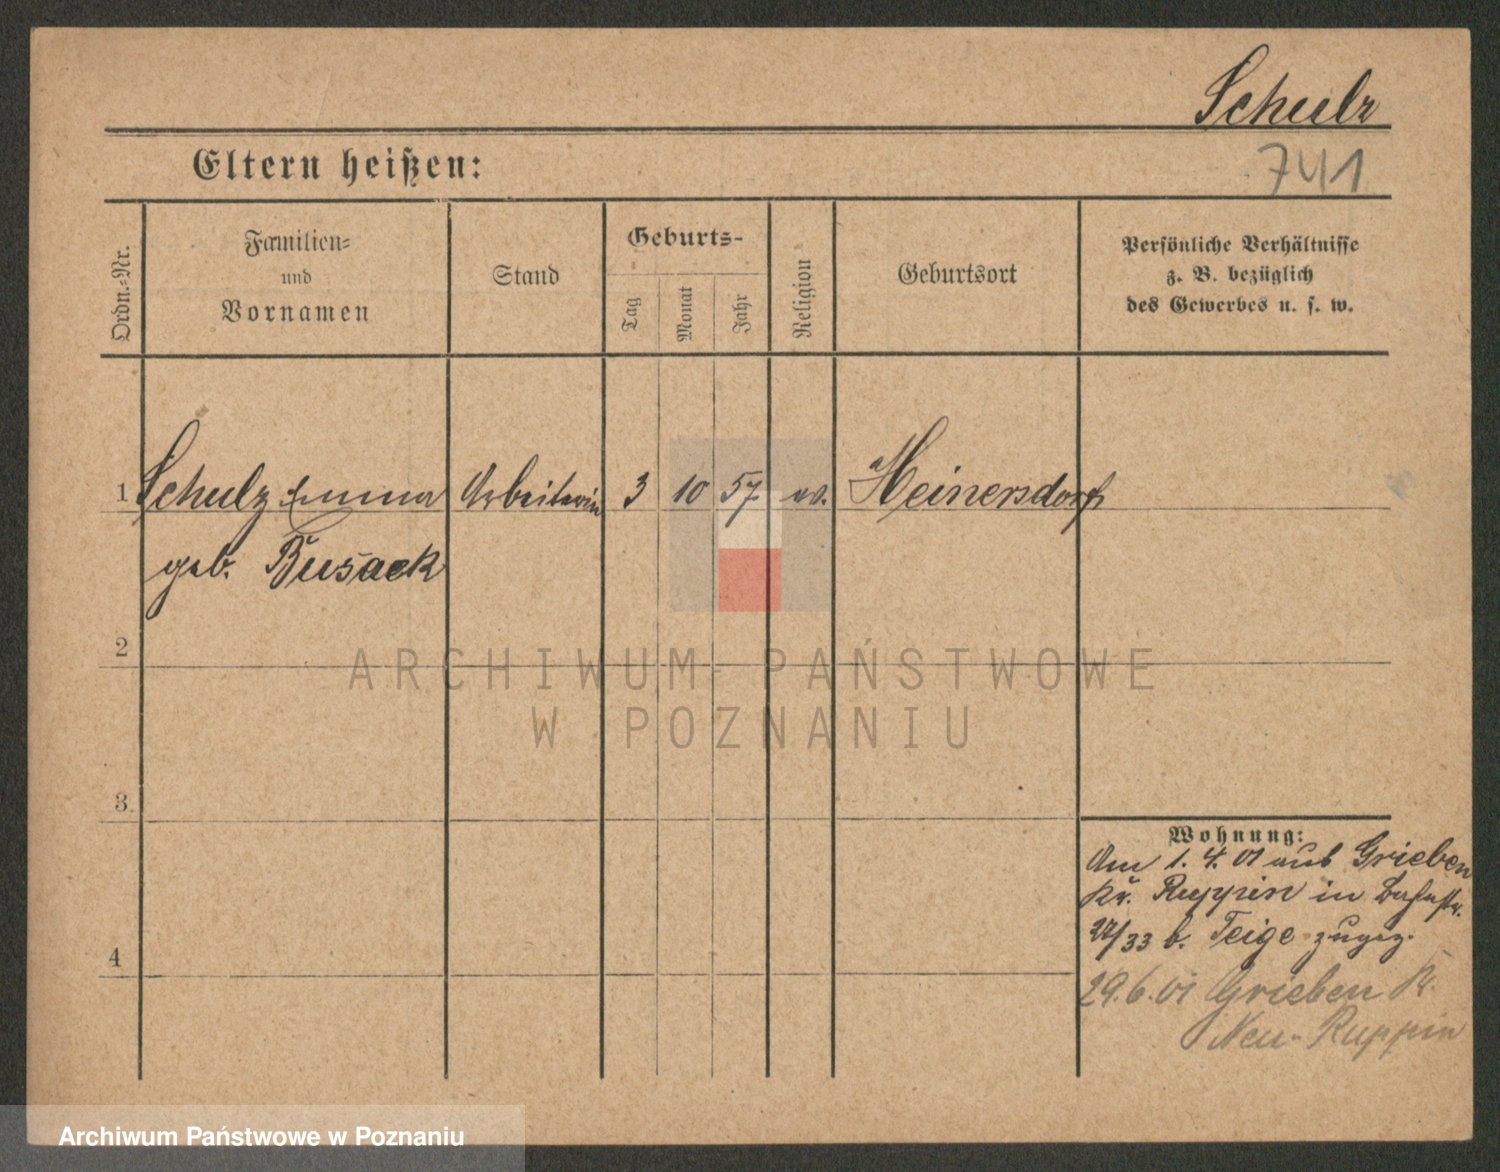 Schulz
741
Eltern heißen:
Ordn.-Nr.
Familien-
und
Vornamen
Stand
Geburts-
Tag
Monat
Jahr
Religion
Geburtsort
Persönliche Verhältnisse
z. B. bezüglich
des Gewerbes u. s. w.
1 Schulz Emma Arbeiterin 3 10 57. ev. Heinersdorf
geb. Busack
2
3
4
Wohnung:
Am 1. 4. 01 aus Grieben
Kr. Ruppin in Bahnstr.
27/33 b. Teige zugez.
29.6.01 Grieben Kr.
Neu-Ruppin
ARCHIWUM PAŃSTWOWE
W POZNANIU
Archiwum Państwowe w Poznaniu